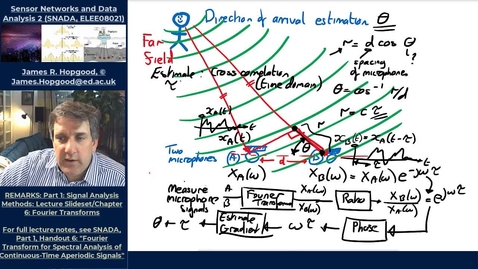 Sensor Networks and Data
Analysis 2 (SNADA, ELEE08021)
James R. Hopgood, ©
James.Hopgood@ed.ac.uk
REMARKS: Part 1: Signal Analysis
Methods: Lecture Slideset/Chapter
6: Fourier Transforms
For full lecture notes, see SNADA,
Part 1, Handout 6: "Fourier
Transform for Spectral Analysis of
Continuous-Time Aperiodic Signals"
Direction of arrival estimation θ
Far
Field
r = d cos θ
spacing
of microphones
?
Estimate : Cross correlation
τ (time domain)
θ = cos⁻¹ r/d
r = c τ
x_A(t)
r
x_B(t) = x_A(t-τ)
t
t
Two
microphones
A
d
θ
B
X_A(ω)
X_B(ω) = X_A(ω) e^-jωτ
Measure
microphone
signals
A
B
Fourier
Transform
X_A(ω)
X_B(ω)
Ratio
X_B(ω)
X_A(ω)
= e^-jωτ
θ ← τ ← Estimate
Gradient
← ωτ ← Phase